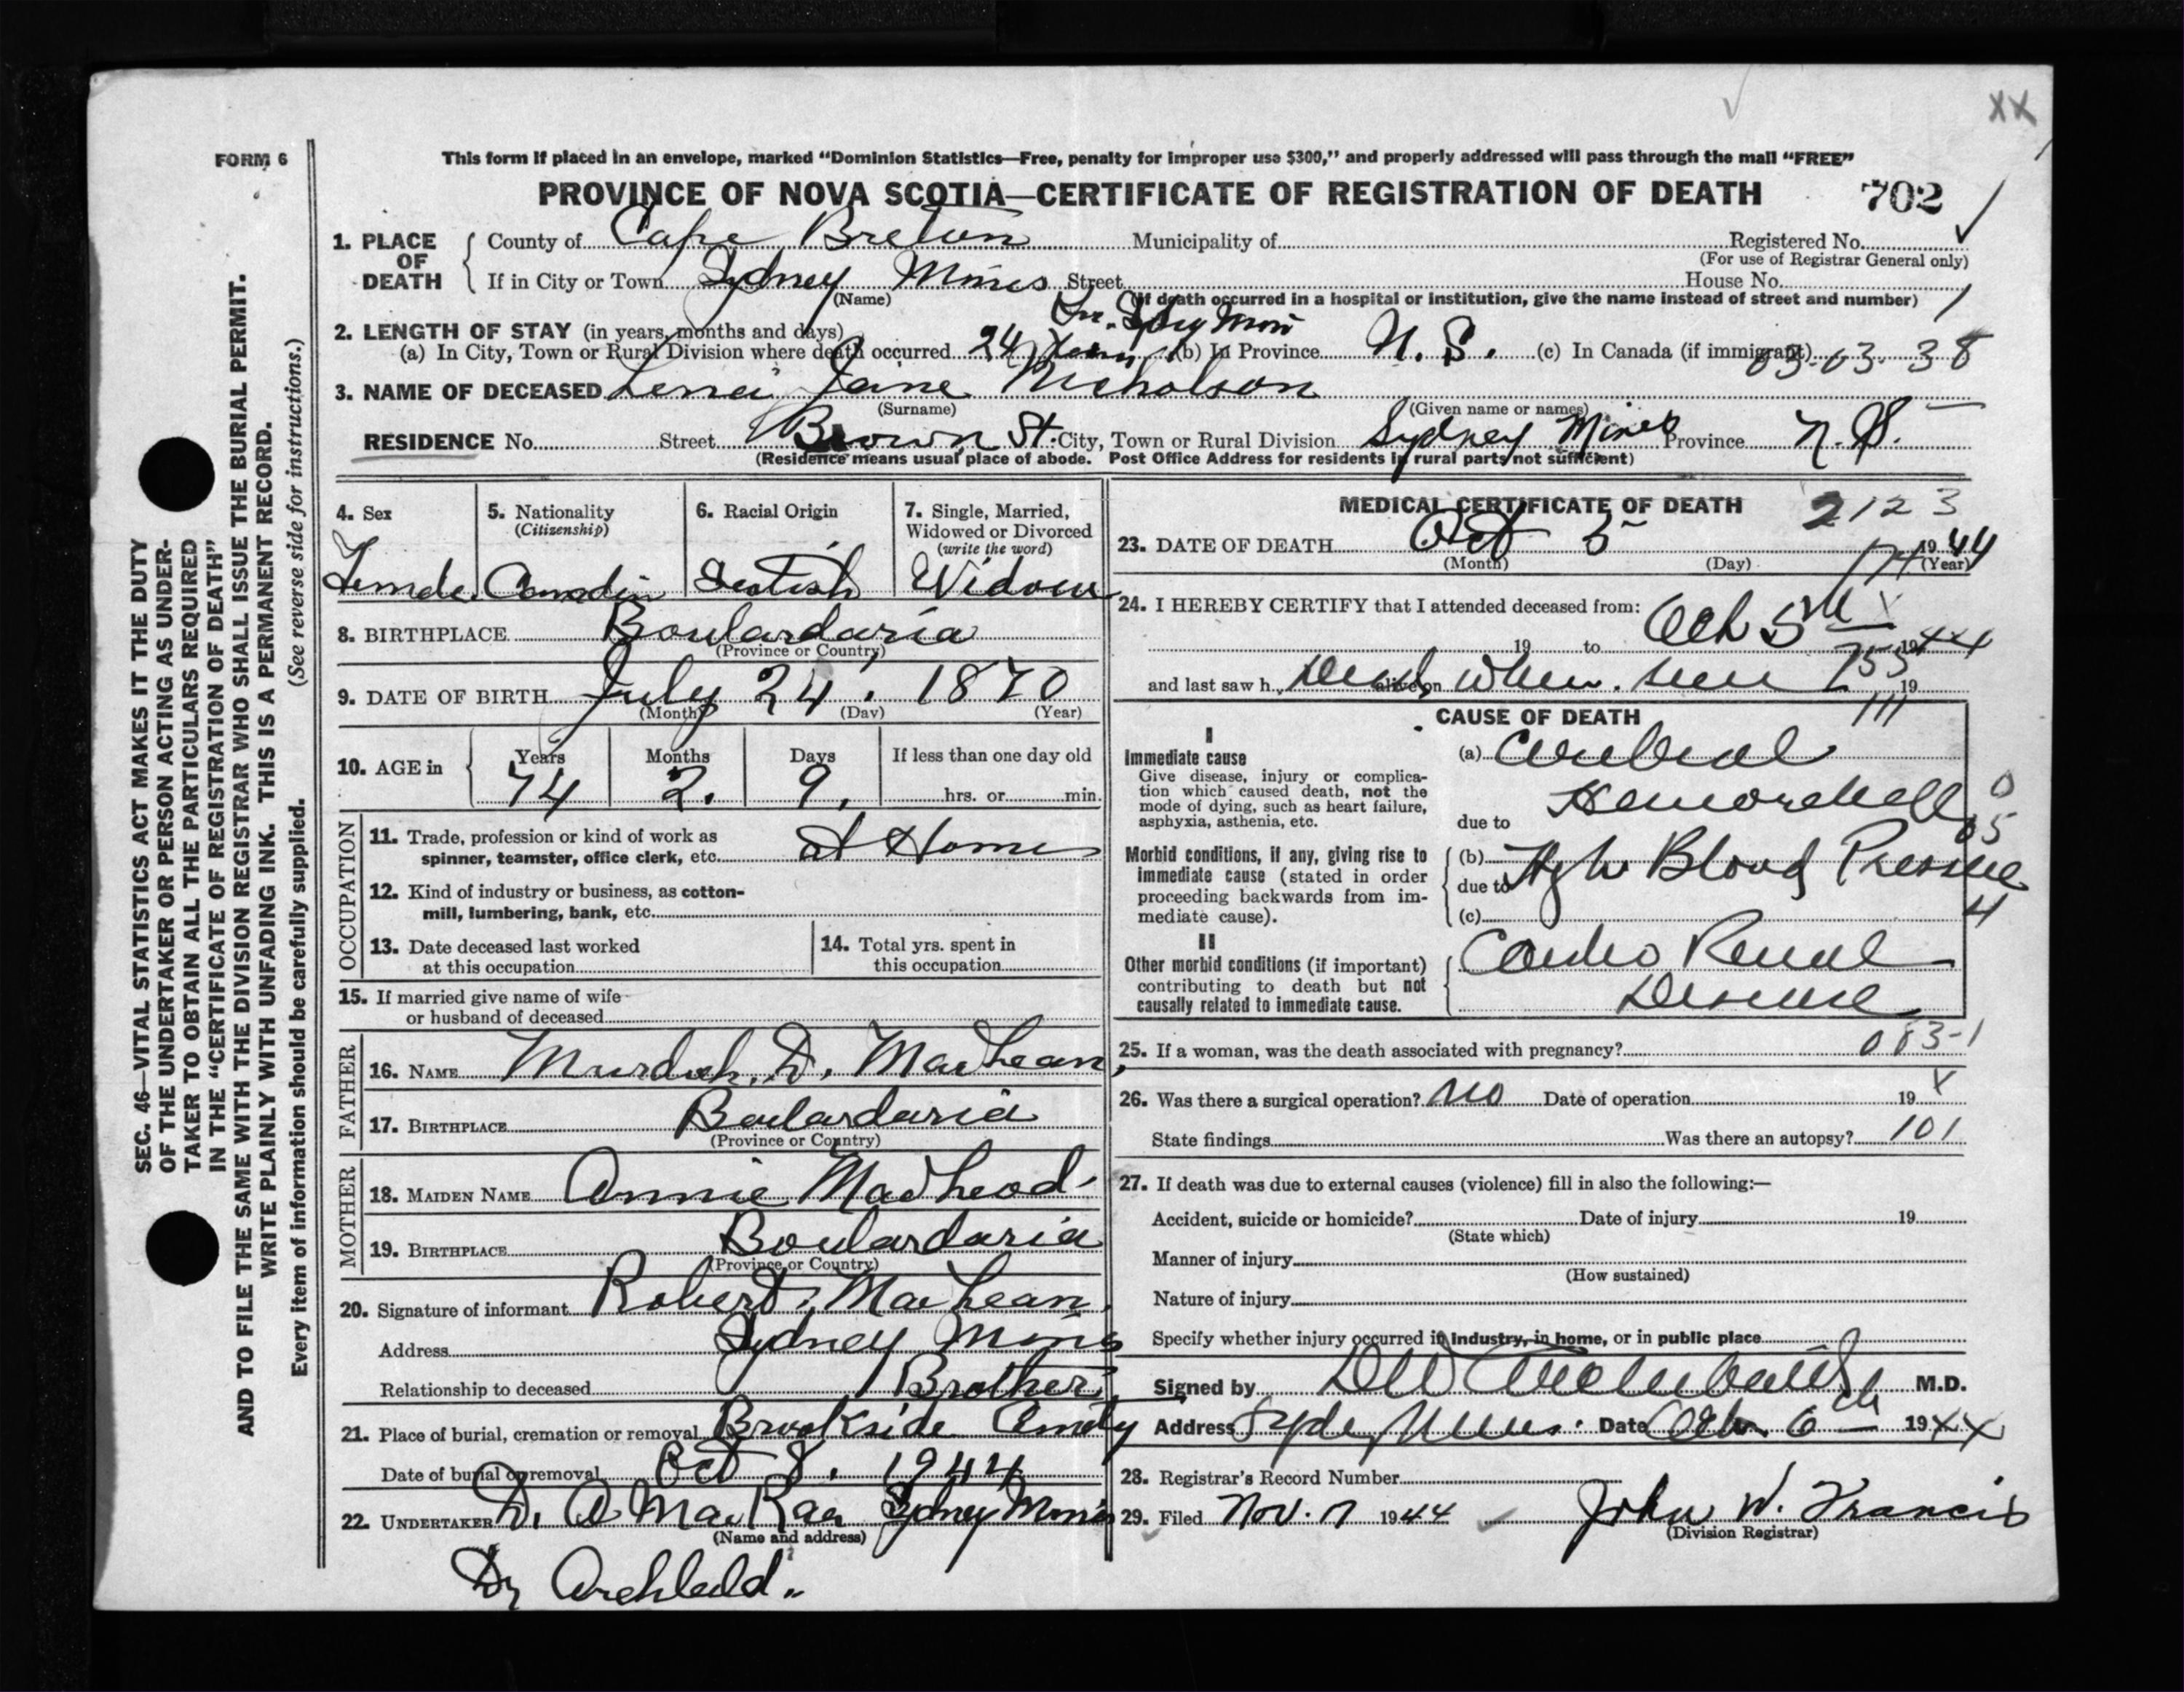 XX
FORM 6
This form if placed in an envelope, marked "Dominion Statistics—Free, penalty for improper use $300," and properly addressed will pass through the mail "FREE"
PROVINCE OF NOVA SCOTIA—CERTIFICATE OF REGISTRATION OF DEATH 702
1. PLACE OF DEATH
County of Cape Breton Municipality of Registered No.
(For use of Registrar General only)
If in City or Town Sydney Mines Street House No.
(Name) (If death occurred in a hospital or institution, give the name instead of street and number) 1
2. LENGTH OF STAY (in years, months and days)
(a) In City, Town or Rural Division where death occurred 24 Years (b) In Province N. S. (c) In Canada (if immigrant) 03-03-38
3. NAME OF DECEASED Lena Jane Nicholson
(Surname) (Given name or names)
RESIDENCE No. Street Brown St. City, Town or Rural Division Sydney Mines Province N. S.
(Residence means usual place of abode. Post Office Address for residents in rural parts not sufficient)
4. Sex 5. Nationality (Citizenship) 6. Racial Origin 7. Single, Married, Widowed or Divorced (write the word)
Female Canadin Scotish Widow
8. BIRTHPLACE Boulardaria
(Province or Country)
9. DATE OF BIRTH July 24. 1870
(Month) (Day) (Year)
10. AGE in Years Months Days If less than one day old
74 2. 9. hrs. or min.
OCCUPATION
11. Trade, profession or kind of work as spinner, teamster, office clerk, etc. at Home
12. Kind of industry or business, as cotton-mill, lumbering, bank, etc.
13. Date deceased last worked at this occupation
14. Total yrs. spent in this occupation
15. If married give name of wife or husband of deceased
FATHER
16. NAME Murdoch. D. MacLean
17. BIRTHPLACE Boulardaria
(Province or Country)
MOTHER
18. MAIDEN NAME Annie MacLeod
19. BIRTHPLACE Boulardaria
(Province or Country)
20. Signature of informant Robert MacLean
Address Sydney Mines
Relationship to deceased Brother
21. Place of burial, cremation or removal Brookside Cemety
Date of burial or removal Oct 8. 1944
22. UNDERTAKER D. A MacRae Sydney Mines
(Name and address)
Dr Archbald.
MEDICAL CERTIFICATE OF DEATH 2123
23. DATE OF DEATH Oct 5 1944
(Month) (Day) (Year)
174
24. I HEREBY CERTIFY that I attended deceased from:
19 to Oct 5th 1944
and last saw h alive on Dead when seen 19
CAUSE OF DEATH
I
Immediate cause
Give disease, injury or complication which caused death, not the mode of dying, such as heart failure, asphyxia, asthenia, etc.
(a) Cerebral
Hemorrhage
due to
Morbid conditions, if any, giving rise to immediate cause (stated in order proceeding backwards from immediate cause).
(b) High Blood Pressure
due to
(c)
II
Other morbid conditions (if important) contributing to death but not causally related to immediate cause.
Cardio Renal
Disease
25. If a woman, was the death associated with pregnancy? 083-1
26. Was there a surgical operation? no Date of operation 19 X
State findings Was there an autopsy? 101
27. If death was due to external causes (violence) fill in also the following:—
Accident, suicide or homicide? Date of injury 19
(State which)
Manner of injury
(How sustained)
Nature of injury
Specify whether injury occurred in industry, in home, or in public place
Signed by M.D.
Address Date Oct 6th 1944
28. Registrar's Record Number
29. Filed Nov. 7 1944 John W. Francis
(Division Registrar)
SEC. 46—VITAL STATISTICS ACT MAKES IT THE DUTY
OF THE UNDERTAKER OR PERSON ACTING AS UNDER-
TAKER TO OBTAIN ALL THE PARTICULARS REQUIRED
IN THE "CERTIFICATE OF REGISTRATION OF DEATH"
AND TO FILE THE SAME WITH THE DIVISION REGISTRAR WHO SHALL ISSUE THE BURIAL PERMIT.
WRITE PLAINLY WITH UNFADING INK. THIS IS A PERMANENT RECORD.
Every item of information should be carefully supplied. (See reverse side for instructions.)